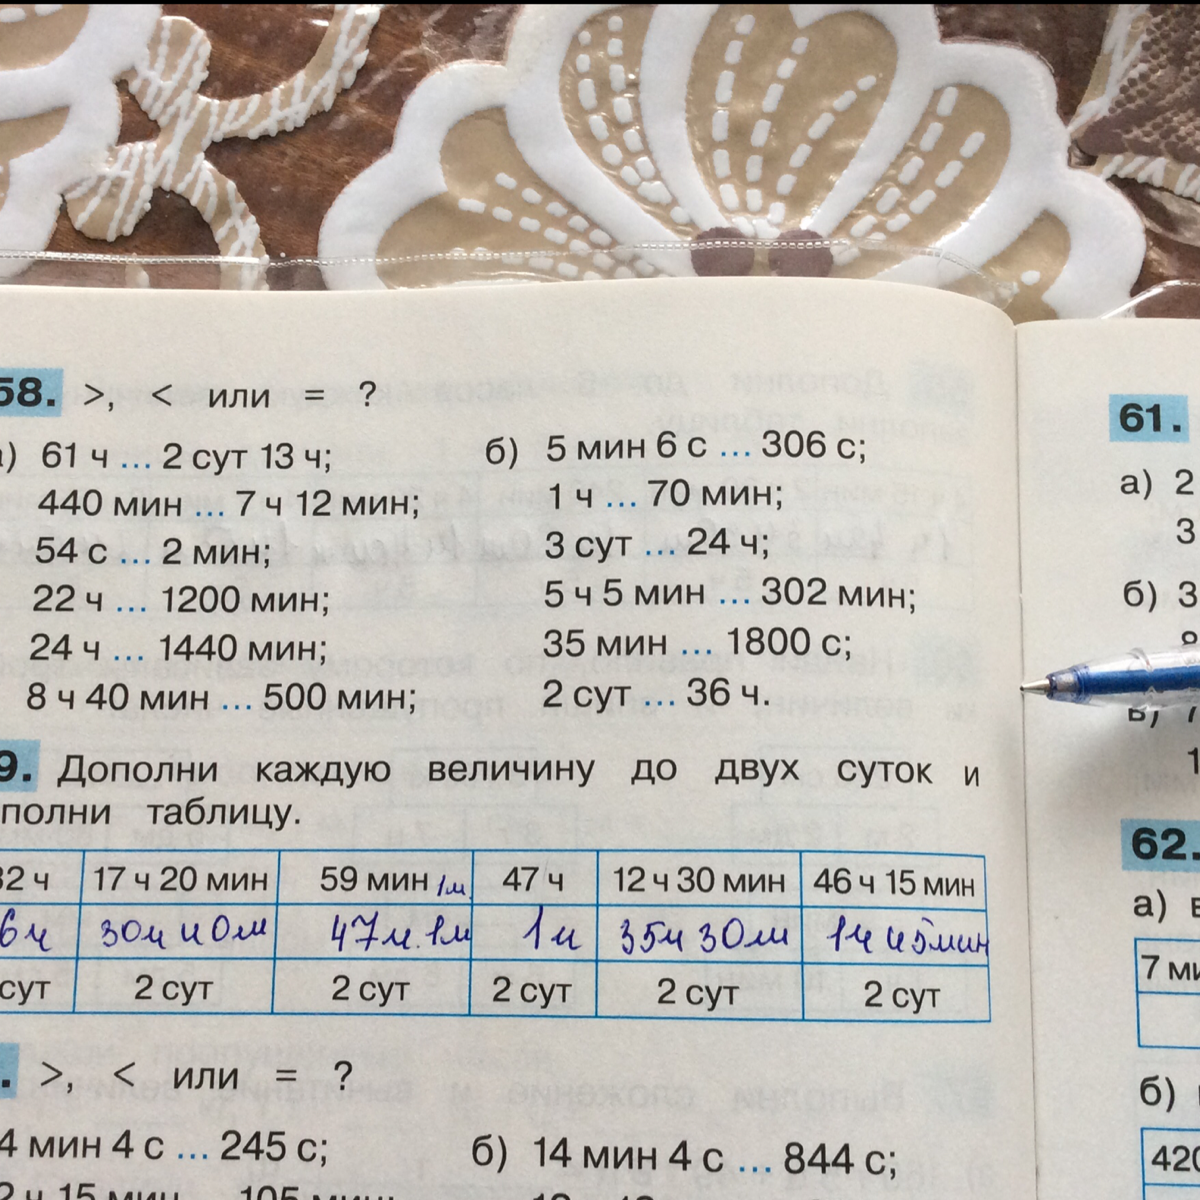 58. >, < или = ?
а) 61 ч ... 2 сут 13 ч;
440 мин ... 7 ч 12 мин;
54 с ... 2 мин;
22 ч ... 1200 мин;
24 ч ... 1440 мин;
8 ч 40 мин ... 500 мин;
б) 5 мин 6 с ... 306 с;
1 ч ... 70 мин;
3 сут ... 24 ч;
5 ч 5 мин ... 302 мин;
35 мин ... 1800 с;
2 сут ... 36 ч.
9. Дополни каждую величину до двух суток и
полни таблицу.
32 ч 17 ч 20 мин 59 мин 1м 47 ч 12 ч 30 мин 46 ч 15 мин
6ч 30ч 40м 47ч.1м 1ч 35ч 30м 1ч 45мин
сут 2 сут 2 сут 2 сут 2 сут 2 сут
. >, < или = ?
4 мин 4 с ... 245 с;
2 ч 15 мин ... 105 мин;
б) 14 мин 4 с ... 844 с;
61.
а) 2
3
б) 3
в) 7
1
62.
а) в
7 ми
б)
420